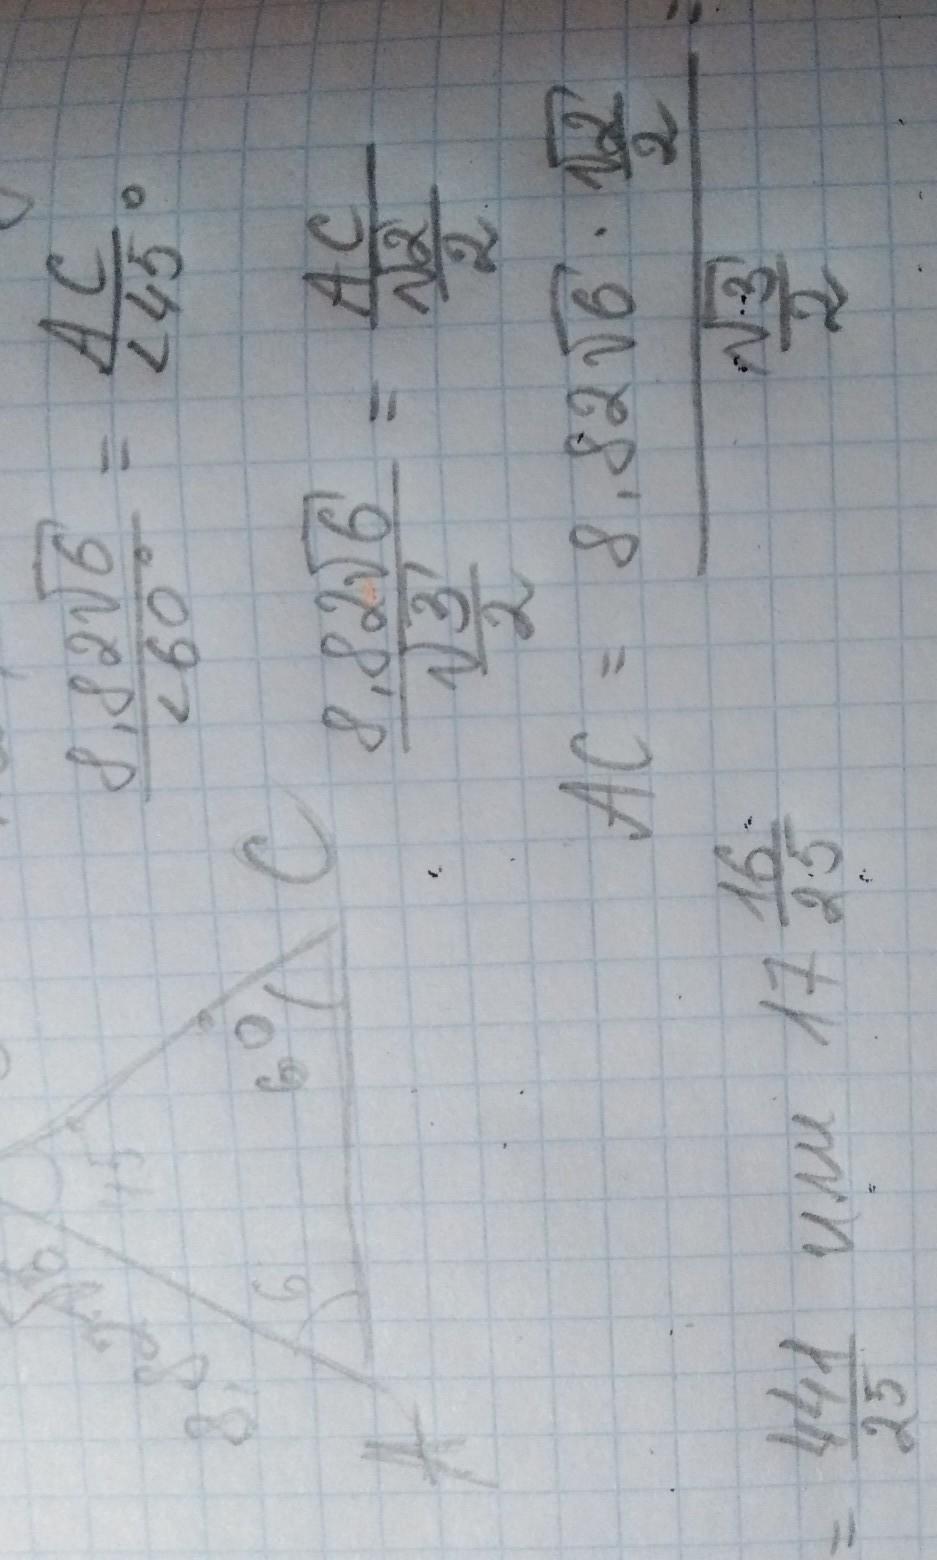 8,82√6/<60° = AC/<45°
8,82√6/(√3/2) = AC/(√2/2)
AC = (8,82√6 · √2/2)/(√3/2) =
= 441/25 или 17 16/25
8,82√6
45
60
A
C